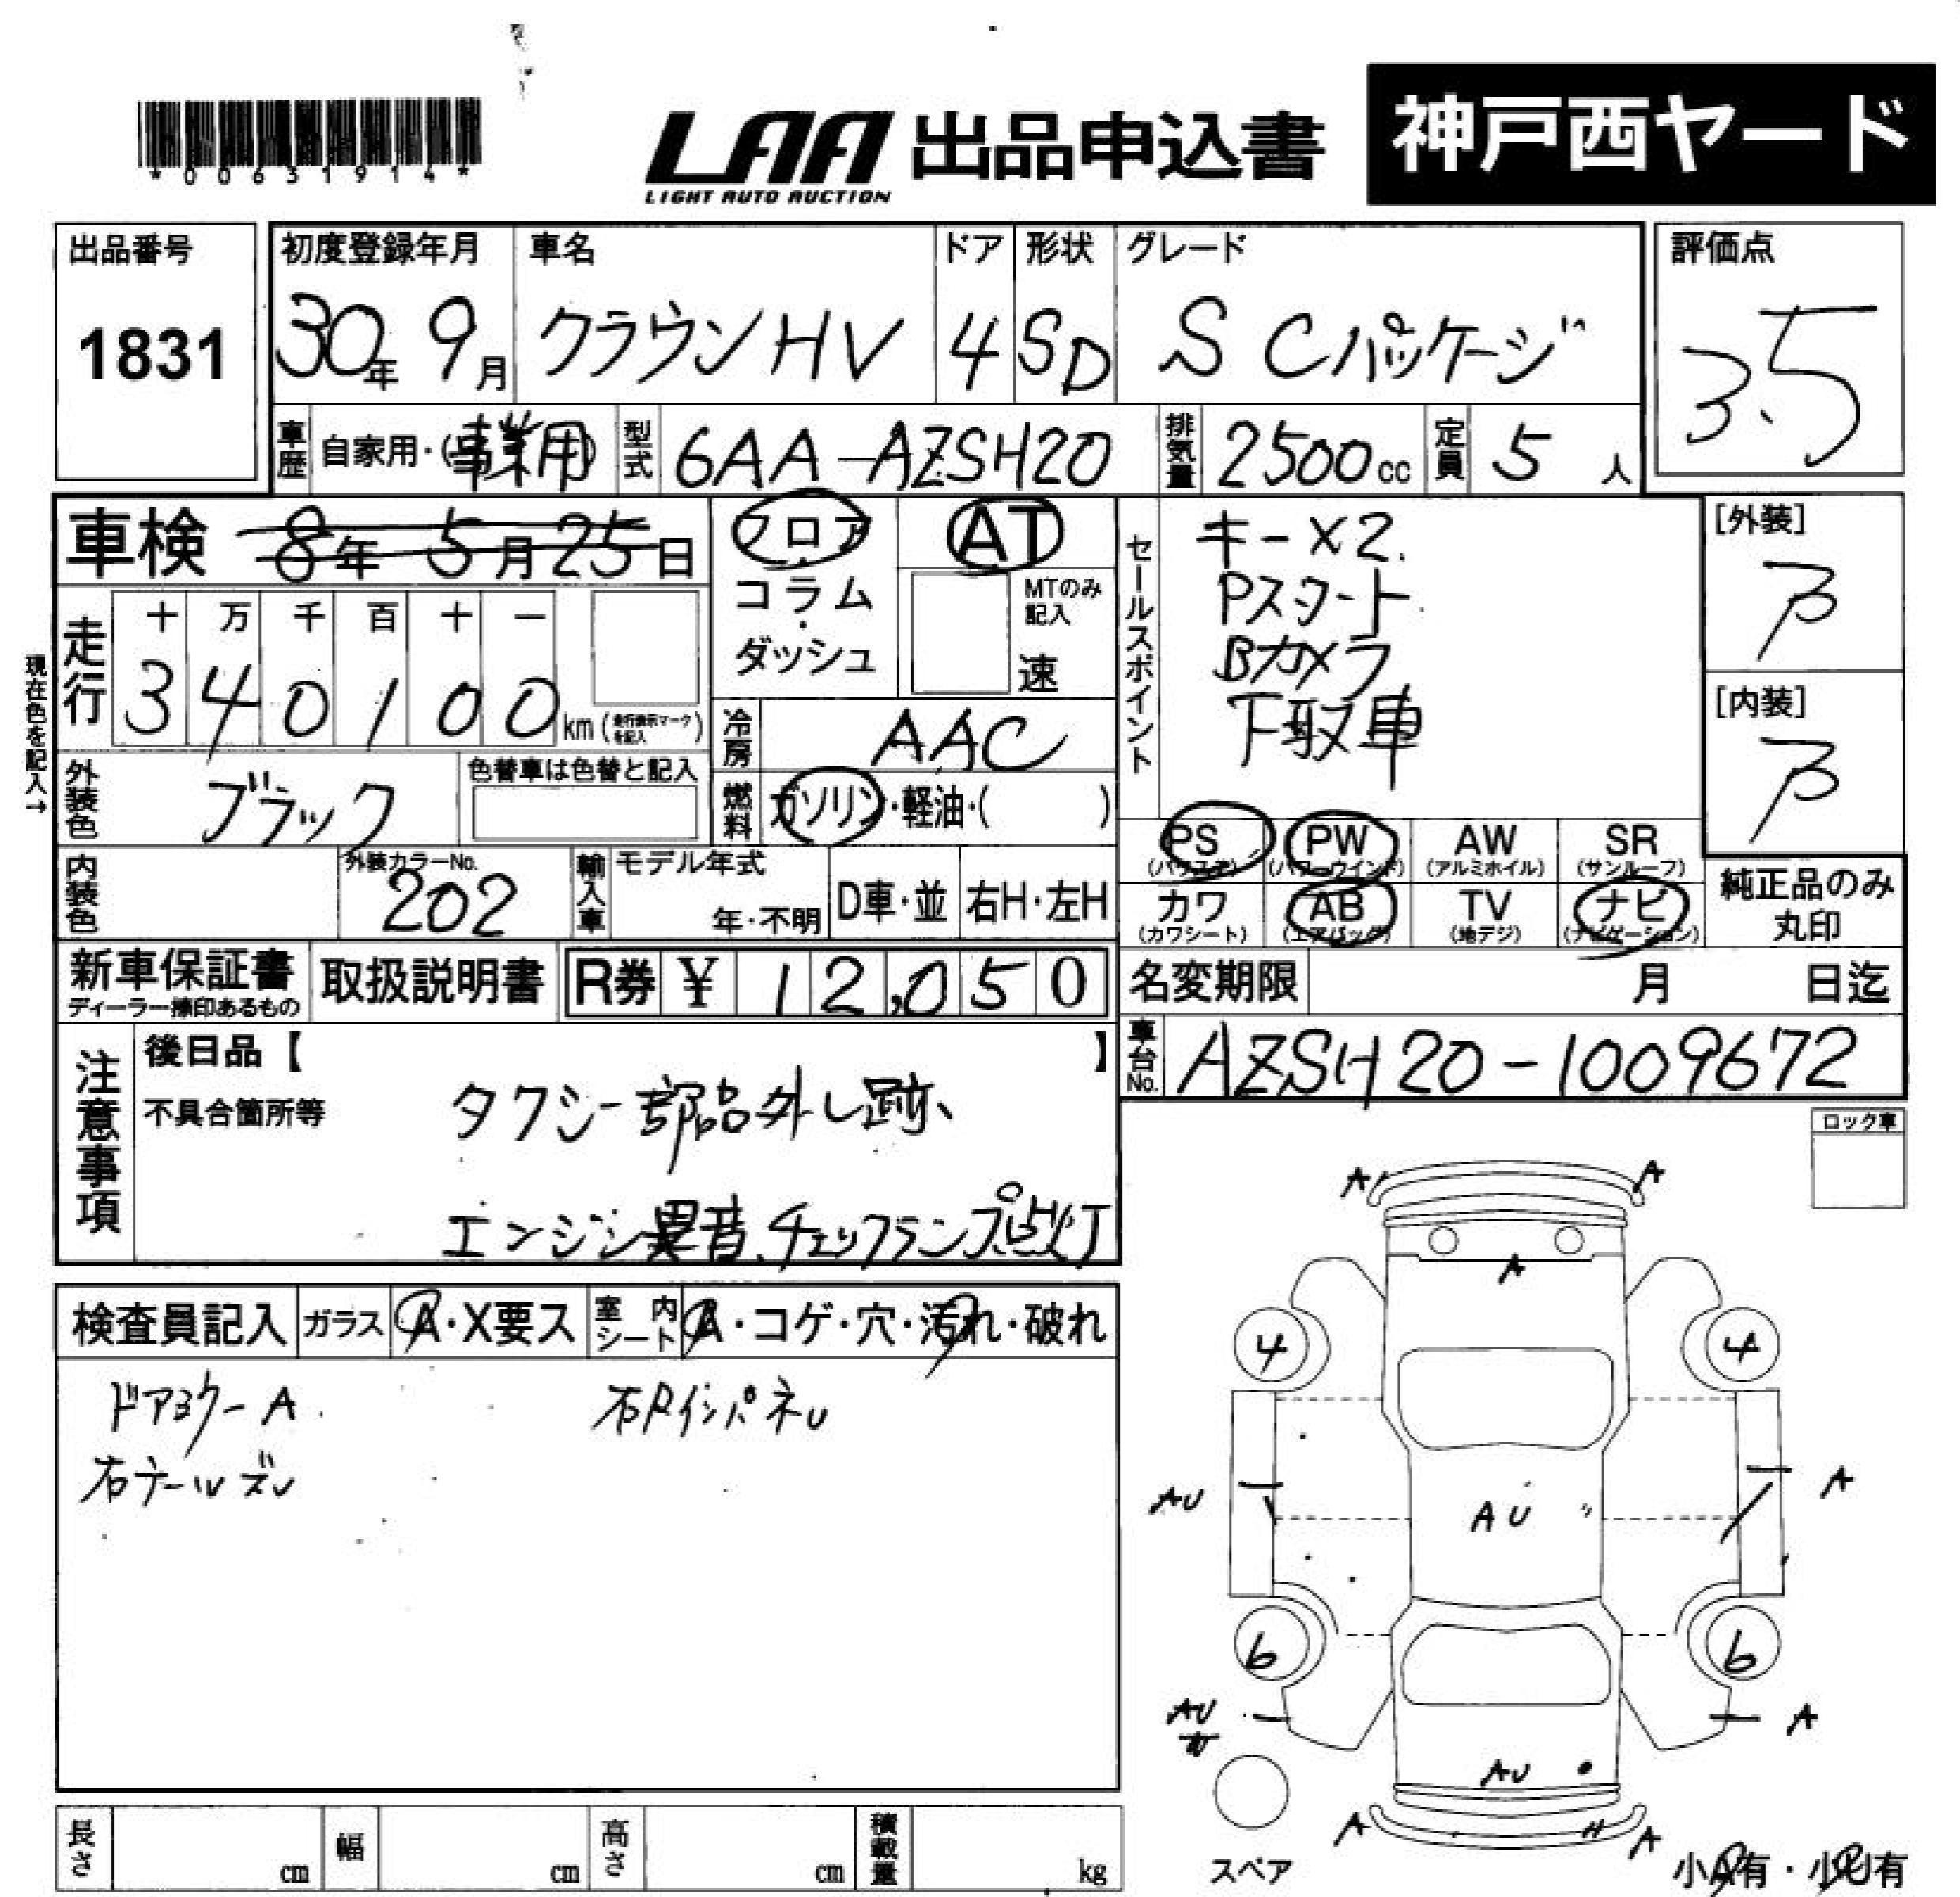 *00631914*
LAA 出品申込書 神戸西ヤード
LIGHT AUTO AUCTION
出品番号
1831
初度登録年月
30年 9月
車名
クラウンHV
ドア
4
形状
SD
グレード
S Cパッケージ
評価点
3.5
車歴
自家用・(事業用)
型式
6AA-AZSH20
排気量
2500cc
定員
5人
車検 8年 5月 25日
フロア・コラム・ダッシュ
AT
MTのみ記入
速
現在色を記入→
走行
十 万 千 百 十 一
3 4 0 1 0 0 km (走行表示マークを記入)
冷房
AAC
外装色
ブラック
色替車は色替と記入
燃料
ガソリン・軽油・( )
内装色
外装カラーNo.
202
輸入車
モデル年式
年・不明
D車・並
右H・左H
セールスポイント
キー×2.
Pスタート
Bカメラ
下取車
[外装]
[内装]
PS (パワステ)
PW (パワーウインド)
AW (アルミホイル)
SR (サンルーフ)
カワ (カワシート)
AB (エアバッグ)
TV (地デジ)
ナビ (ナビゲーション)
純正品のみ
丸印
新車保証書
ディーラー捺印あるもの
取扱説明書
R券 ¥ 12,050
名変期限 月 日迄
車台No.
AZSH20-1009672
注意事項
後日品【 】
不具合箇所等
タクシー部品外し跡、
エンジン異音、チェックランプ点灯
ロック車
検査員記入
ガラス A・X要ス
室内シート A・コゲ・穴・汚れ・破れ
ドアミラーA
A A
A
4 4
AU
AU
A
6 6
AU
A
AU
A A
スペア
小A有・小U有
長さ cm
幅 cm
高さ cm
積載量 kg